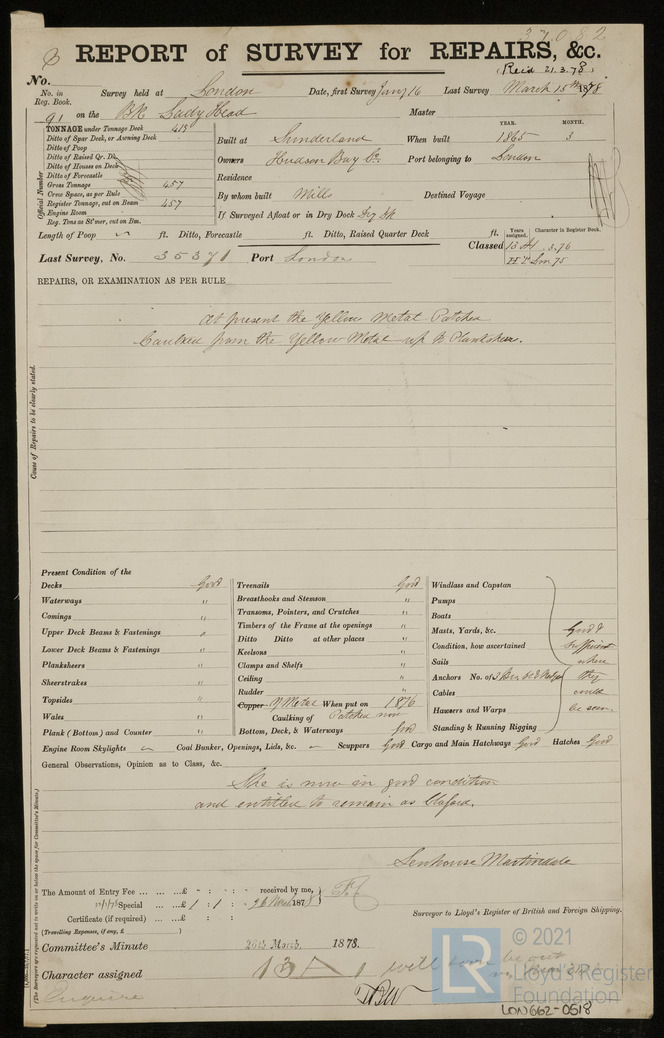 37082
REPORT of SURVEY for REPAIRS, &c.
(Rec'd 21.3.78)
No.
No. in Reg. Book. Survey held at London Date, first Survey Jany 16 Last Survey March 15th 1878
91 on the Bk Sally Head Master
TONNAGE under Tonnage Deck 418
Ditto of Spar Deck, or Awning Deck
Ditto of Poop
Ditto of Raised Qr. Dk
Ditto of Houses on Deck
Ditto of Forecastle
Gross Tonnage 457
Crew Space, as per Rule
Register Tonnage, cut on Beam 457
Engine Room
Reg. Tons as St'mer, cut on Bm.
Official Number
YEAR. MONTH.
Built at Sunderland When built 1865 3
Owners Hudson Bay Co. Port belonging to London
Residence
By whom built Mills Destined Voyage
If Surveyed Afloat or in Dry Dock Dry Dk
Length of Poop ft. Ditto, Forecastle ft. Ditto, Raised Quarter Deck ft.
Years assigned. Character in Register Book.
Classed 13 A1 3.76
Last Survey, No. 35371 Port London
HT Lon 75
REPAIRS, OR EXAMINATION AS PER RULE
At present the Yellow Metal Patched
Caulked from the Yellow Metal up to Planksheer.
Cause of Repairs to be clearly stated.
Present Condition of the
Decks Good
Waterways "
Comings "
Upper Deck Beams & Fastenings "
Lower Deck Beams & Fastenings "
Planksheers "
Sheerstrakes "
Topsides "
Wales "
Plank (Bottom) and Counter "
Treenails Good
Breasthooks and Stemson "
Transoms, Pointers, and Crutches "
Timbers of the Frame at the openings "
Ditto Ditto at other places "
Keelsons "
Clamps and Shelfs "
Ceiling "
Rudder "
Copper Y Metal When put on 1876
Caulking of Patched now
Bottom, Deck, & Waterways Good
Windlass and Capstan
Pumps
Boats
Masts, Yards, &c.
Condition, how ascertained
Sails
Anchors No. of 3
Cables
Hawsers and Warps
Standing & Running Rigging
Good & sufficient where they could be seen
Engine Room Skylights Coal Bunker, Openings, Lids, &c. Scuppers Good Cargo and Main Hatchways Good Hatches Good
General Observations, Opinion as to Class, &c.
She is now in good condition
and entitled to remain as Classed.
Senhouse Martindale
The Amount of Entry Fee ... ... ...£ - : - : - received by me,
Special ... ...£ 1 : 1 : 26 March 1878
Certificate (if required) ... : :
(Travelling Expenses, if any, £ )
Surveyor to Lloyd's Register of British and Foreign Shipping.
Committee's Minute 26th March 1878.
Character assigned 13 A 1 will
Enquire
(The Surveyors are requested not to write on or below the space for Committee's Minute.)
© 2021
LR
Lloyd's Register
Foundation
LON662-0518